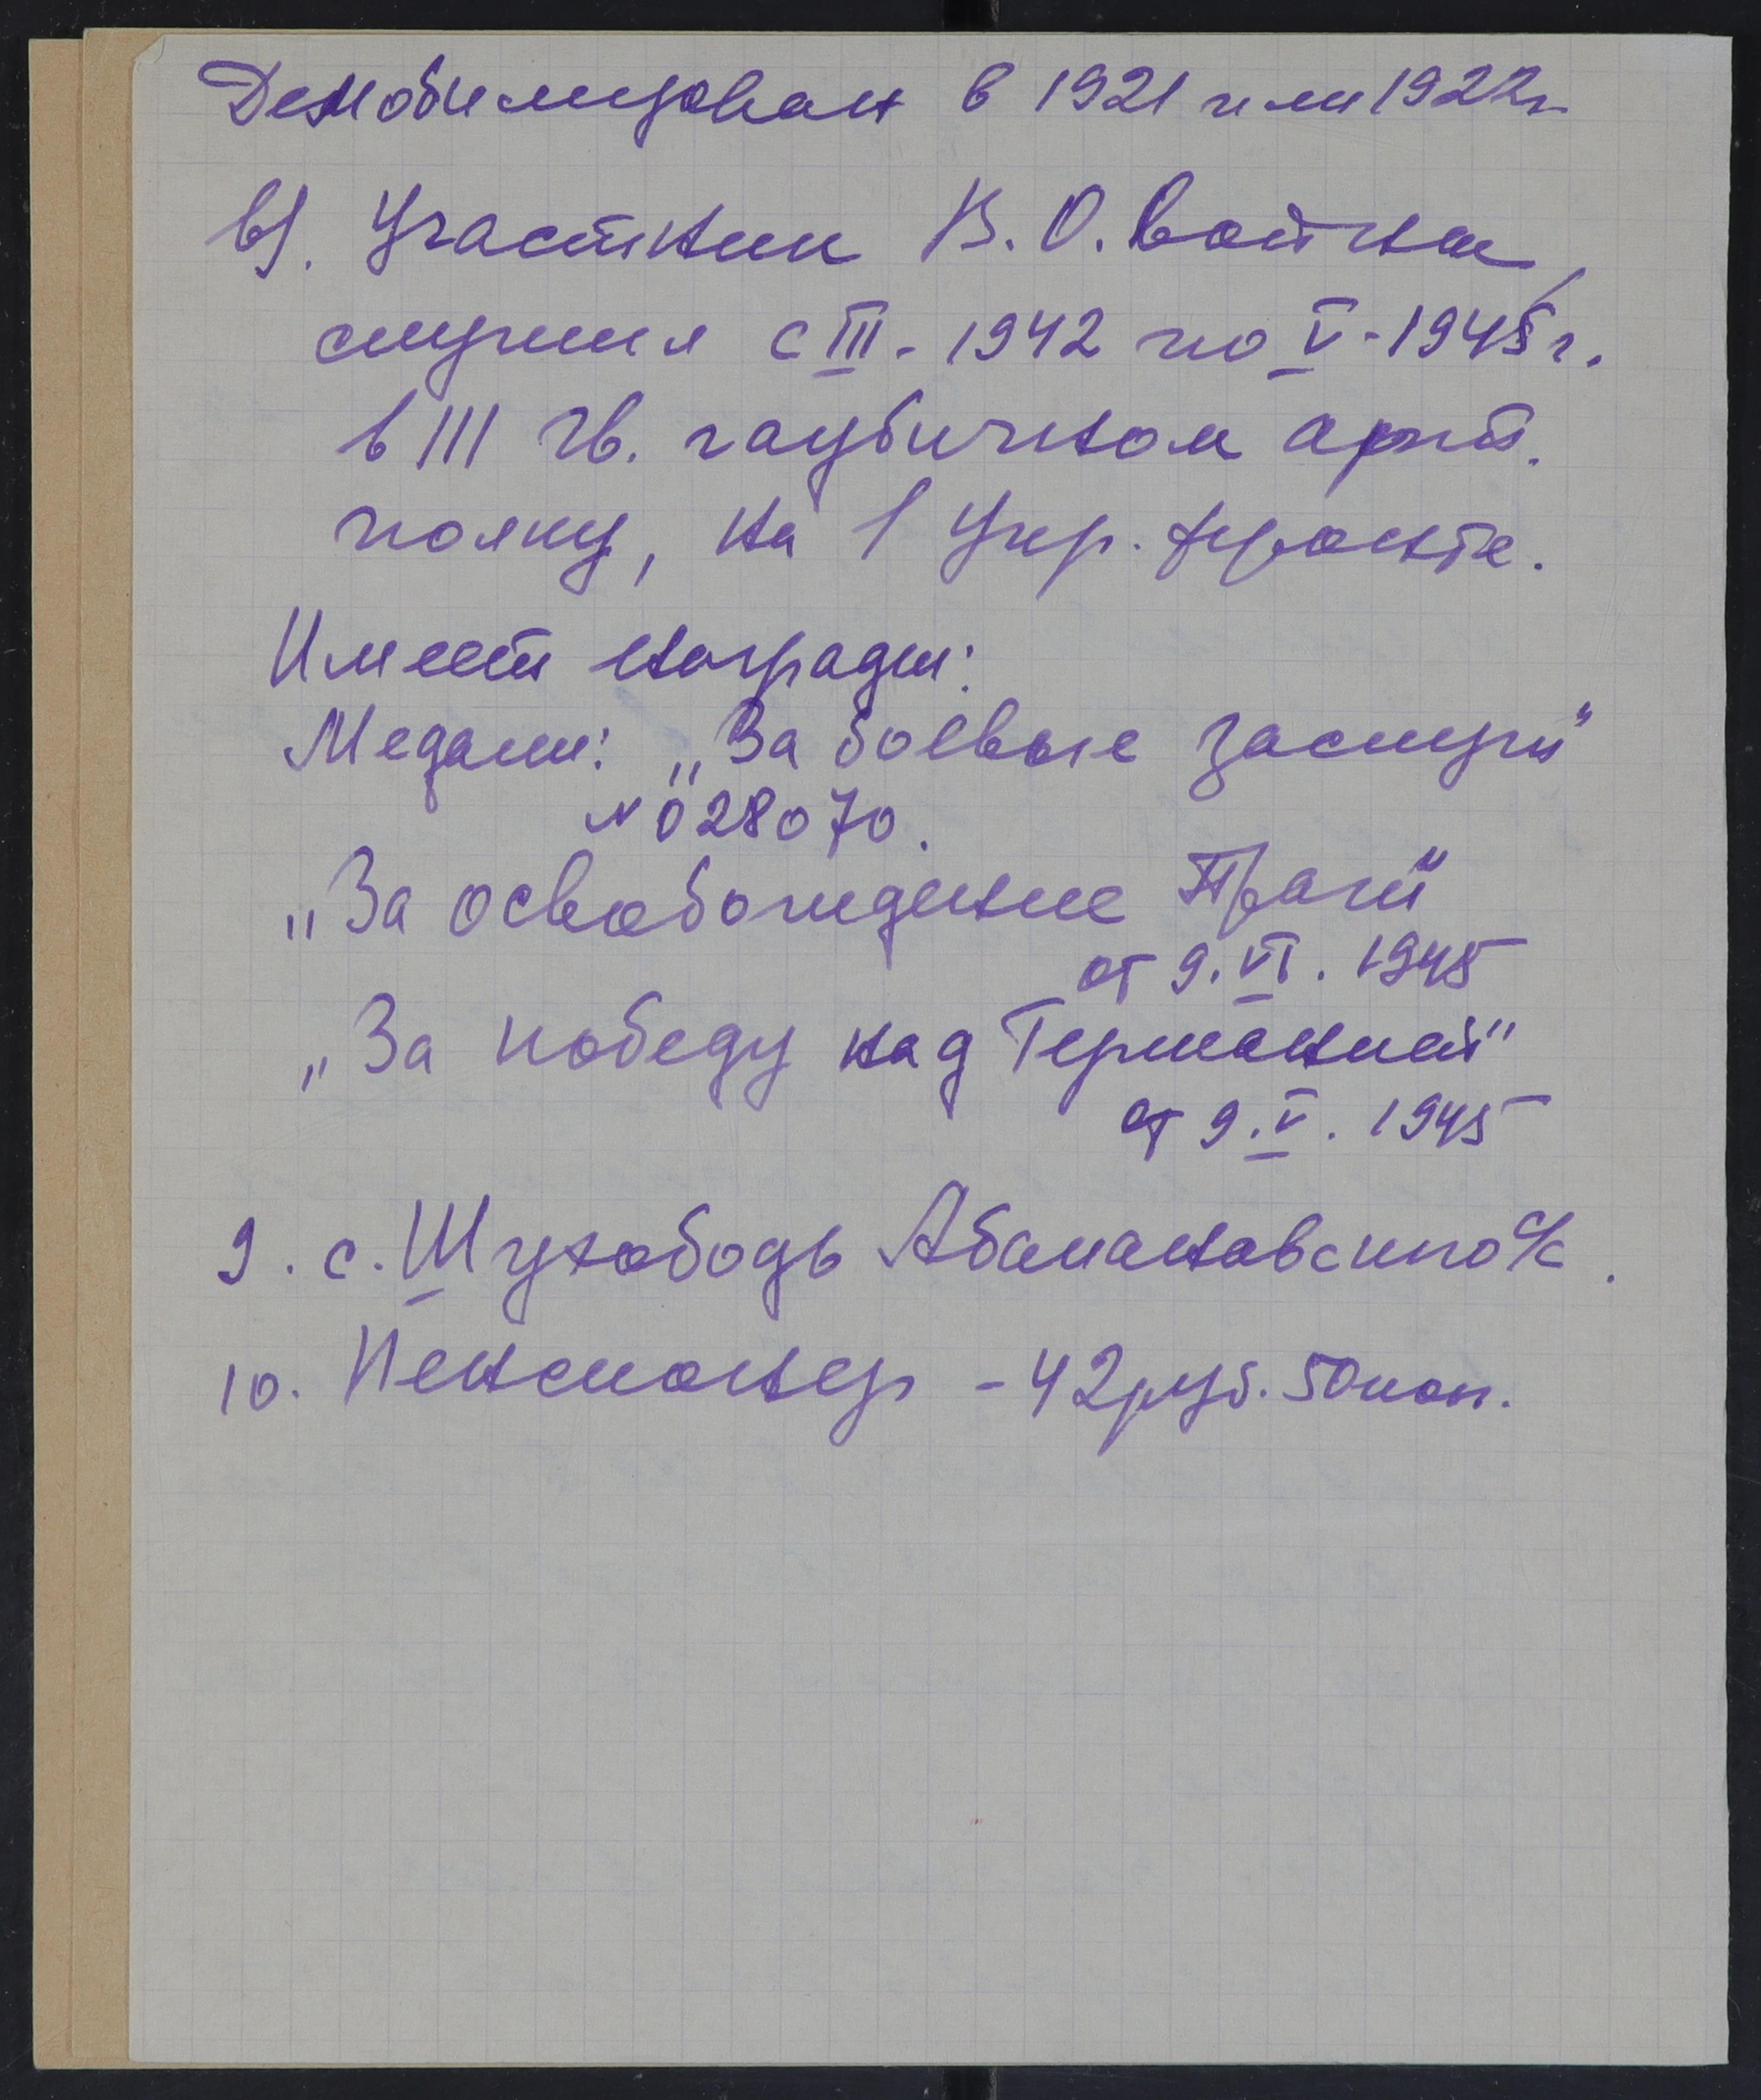 Демобилизован в 1921 или 1922 г.
в). Участник В. О. войны,
служил с III - 1942 по V - 1945 г.
в 111 Гв. гаубичном арт.
полку, на 1 Укр. фронте.
Имеет награды:
Медали: „За боевые заслуги“
№ 028070.
„За освобождение Праги“
от 9. VI. 1945
„За победу над Германией“
от 9. V. 1945
9. с. Шухободь Абакановского с/с.
10. Пенсионер - 42 руб. 50 коп.